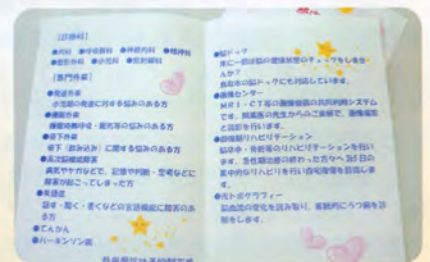 [診療科]
●内科 ●呼吸器科 ●神経内科 ●精神科
●整形外科 ●小児科 ●放射線科
[専門外来]
●発達外来
小児期の発達に対する悩みのある方
●睡眠外来
睡眠時無呼吸・鼾等の悩みのある方
●嚥下外来
嚥下(飲み込み)に関する悩みのある方
●高次脳機能障害
病気やケガなどで、記憶や判断・思考などに
障害が起こってしまった方
●失語症
話す・聞く・書くなどの言語機能に障害のあ
る方
●てんかん
●パーキンソン病
●脳ドック
年に一回は脳の健康状態のチェックをしませ
んか?
鳥取市の脳ドックにも対応しています。
●画像センター
MRI・CT等の画像機器の共同利用システム
です。開業医の先生からのご依頼で、画像撮影
と読影を行います。
●回復期リハビリテーション
脳卒中・骨折等のリハビリテーションを行い
ます。急性期治療の終わった方々へ365日の
集中的なリハビリを行い自宅復帰を目指しま
す。
●光トポグラフィー
脳血流の変化を読み取り、客観的にうつ病を診
断をします。